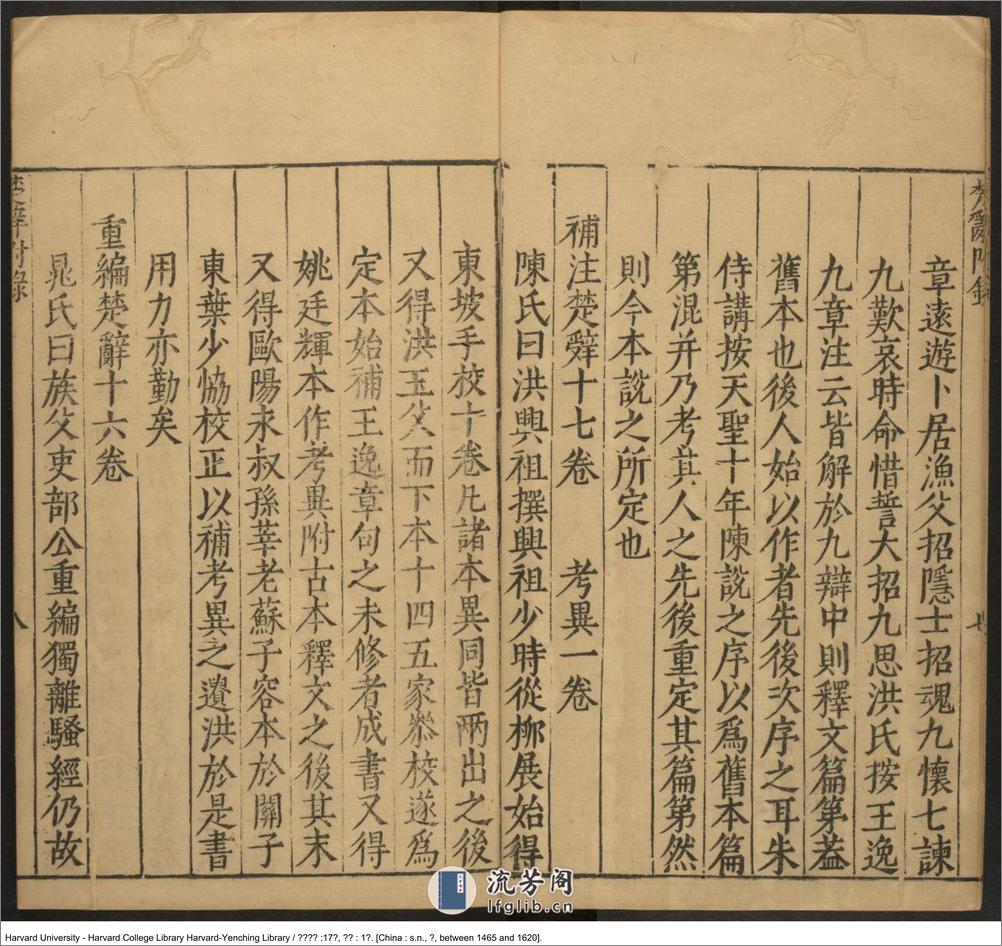 章遠遊卜居漁父招隱士招魂九懷七諫
九歎哀時命惜誓大招九思洪氏按王逸
九章注云皆解於九辯中則釋文篇第葢
舊本也後人始以作者先後次序之耳朱
侍講按天聖十年陳說之序以爲舊本篇
第混并乃考其人之先後重定其篇第然
則今本說之所定也
補注楚辭十七卷　考異一卷
陳氏曰洪興祖撰興祖少時從柳展始得
東坡手校十卷凡諸本異同皆兩出之後
又得洪玉父而下本十四五家叅校遂爲
定本始補王逸章句之未修者成書又得
姚廷輝本作考異附古本釋文之後其末
又得歐陽永叔孫莘老蘇子容本於關子
東葉少恊校正以補考異之遺洪於是書
用力亦勤矣
重編楚辭十六卷
晁氏曰族父吏部公重編獨離騷經仍故
楚辭附錄
八
流芳阁
lfglib.cn
Harvard University - Harvard College Library Harvard-Yenching Library / ???? :17?, ?? : 1?. [China : s.n., ?, between 1465 and 1620].